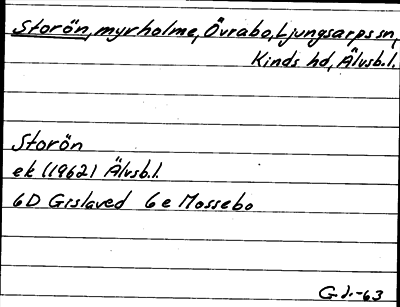 Storön, myrholme, Övrabo, Ljungsarps sn,
Kinds hd, Älvsb.l.
Storön
ek (1962) Älvsb.l.
6D Gislaved 6e Mossebo
G.J.-63